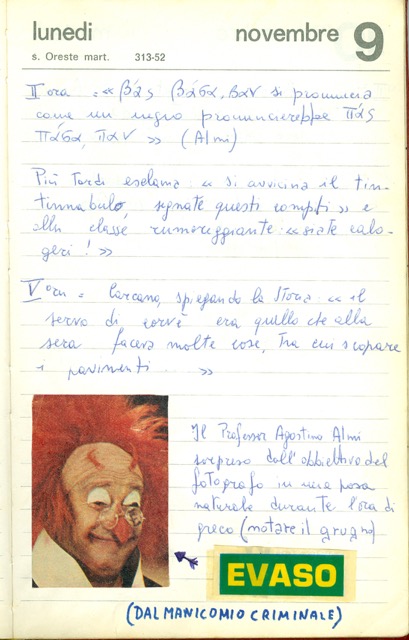 lunedì
novembre 9
s. Oreste mart. 313-52
II ora: «βάς βάσα, βαν si pronuncia
come un negro pronuncierebbe πάς
πάσα, παν » (Almi)
Più tardi esclama: « si avvicina il tin-
tinnabulo, segnate questi compiti » e
alla classe rumoreggiante: « siate calo-
geri! »
V ora = Carcano, spiegando la storia: « il
servo di corvè era quello che alla
sera faceva molte cose, tra cui scopare
i pavimenti... »
Il Professor Agostino Almi
sorpreso dall'obbiettivo del
fotografo in una posa
naturale durante l'ora di
greco (notare il grugno)
EVASO
(DAL MANICOMIO CRIMINALE)